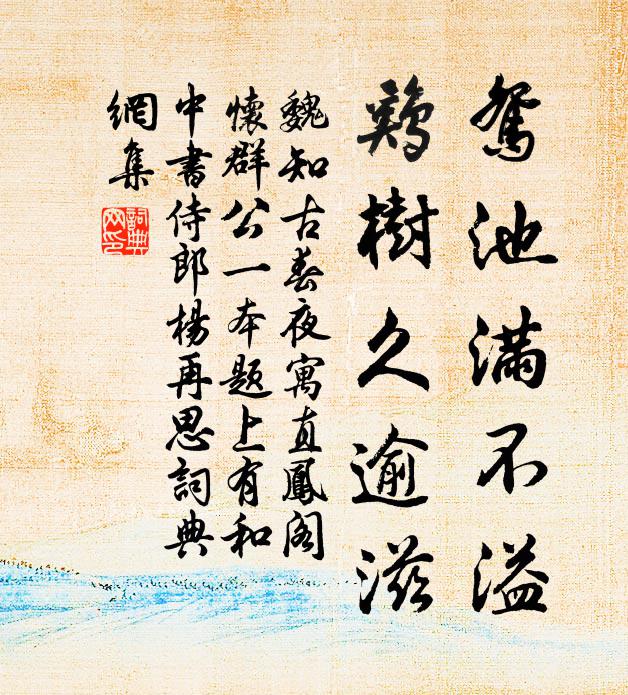 鴛池滿不溢
鷄樹久逾滋
魏知古春夜寓直鳳閣
懷群公一本題上有和
中書侍郎楊再思詞典
網集
詞典
网印